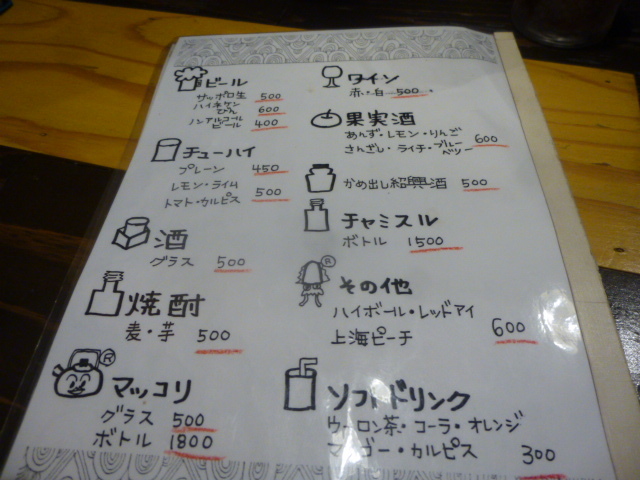 ビール
サッポロ生 500
ハイネケン
びん 600
ノンアルコール
ビール 400
チューハイ
プレーン 450
レモン・ライム
トマト・カルピス 500
酒
グラス 500
焼酎
麦・芋 500
R
マッコリ
グラス 500
ボトル 1800
ワイン
赤・白 500
果実酒
あんず・レモン・りんご
さんざし・ライチ・ブルー
ベリー 600
かめ出し紹興酒 500
チャミスル
ボトル 1500
R
その他
ハイボール・レッドアイ
上海ピーチ 600
ソフトドリンク
ウーロン茶・コーラ・オレンジ
マンゴー・カルピス 300